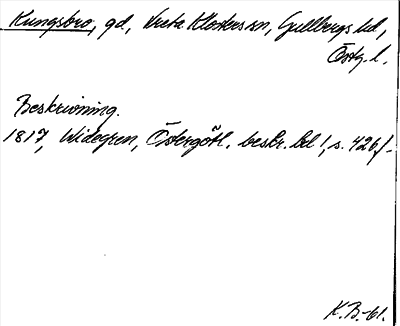 Kungsbro, gd, Vreta Klosters sn, Gullbergs hd,
Östg. l.
Beskrivning.
1817, Widegren, Östergötl. beskr. bd 1, s. 426 f.
K.B.-61.